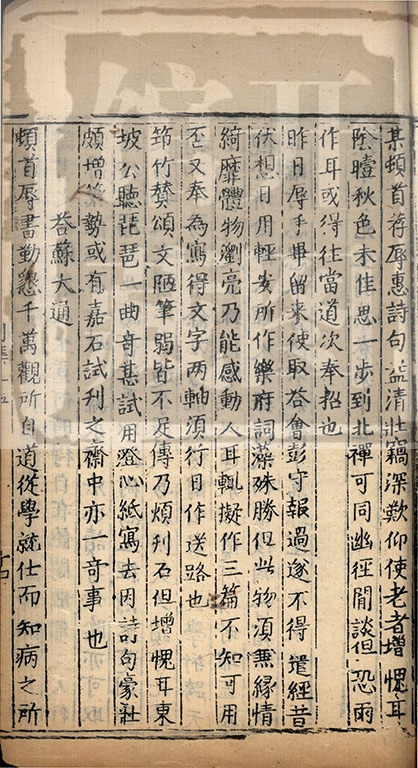 某頓首荐辱惠詩句益清壯竊深歎仰使老者增愧耳
陰曀秋色未佳思一步到北禪可同幽徑閒談但恐雨
作耳或得往當道次奉招也
昨日辱手畢留來使取答會彭守報過遂不得遣經昔
伏想日用輕安所作樂府詞藻殊勝但此物須兼緣情
綺靡體物瀏亮乃能感動人耳輒擬作三篇不知可用
否又奉為寫得文字兩軸須行日作送路也
筇竹賛頌文陋筆弱皆不足傳乃煩刋石但增愧耳東
坡公聽琵琶一曲奇甚試用澄心紙寫去因詩句豪壯
頗增筆勢或有嘉石試刋之齋中亦一奇事也
荅蘇大通
頓首辱書勤懇千萬觀所自道從學就仕而知病之所